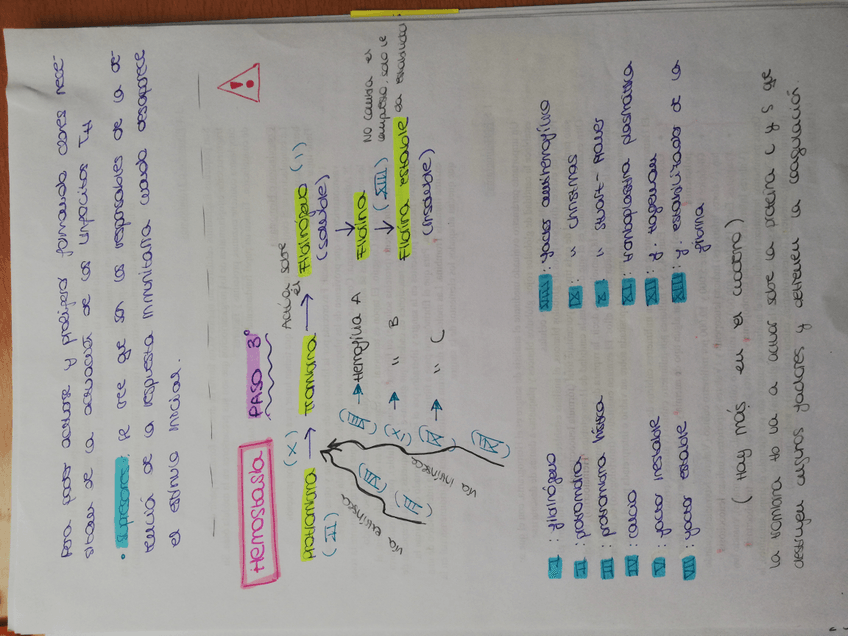 para poder activarse y proliferar formando clones nece-
sitan de la actuación de los linfocitos TH
• Supresora: se cree qe son los responsables de la de-
tención de la respuesta inmunitaria cuando desaparece
el estímulo inicial.
Hemostasia PASO 3º
Protrombina (X) → Trombina → Fibrinógeno (I)
(II) Actúa sobre él (soluble)
vía extrínseca
(III)
(VII)
vía intrínseca
(VIII) → Hemofilia A
(IX) → " B
(XI) → " C
(XII)
↓
Fibrina
↓ (XIII) NO causa el
tapón, solo le
da estabilidad
Fibrina estable
(insoluble)
I: fibrinógeno
II: protrombina
III: protrombina hística
IV: calcio
V: factor inestable
VII: factor estable
VIII: factor antihemofílico
IX: " Christmas
X: " Stuart-Prower
XI: tromboplastina plasmática
XII: f. Hageman
XIII: f. estabilizador de la
fibrina
(Hay más en el cuadro)
la trombina tb va a actuar sobre la proteína C y S qe
destruyen ciertos factores y detienen la coagulación